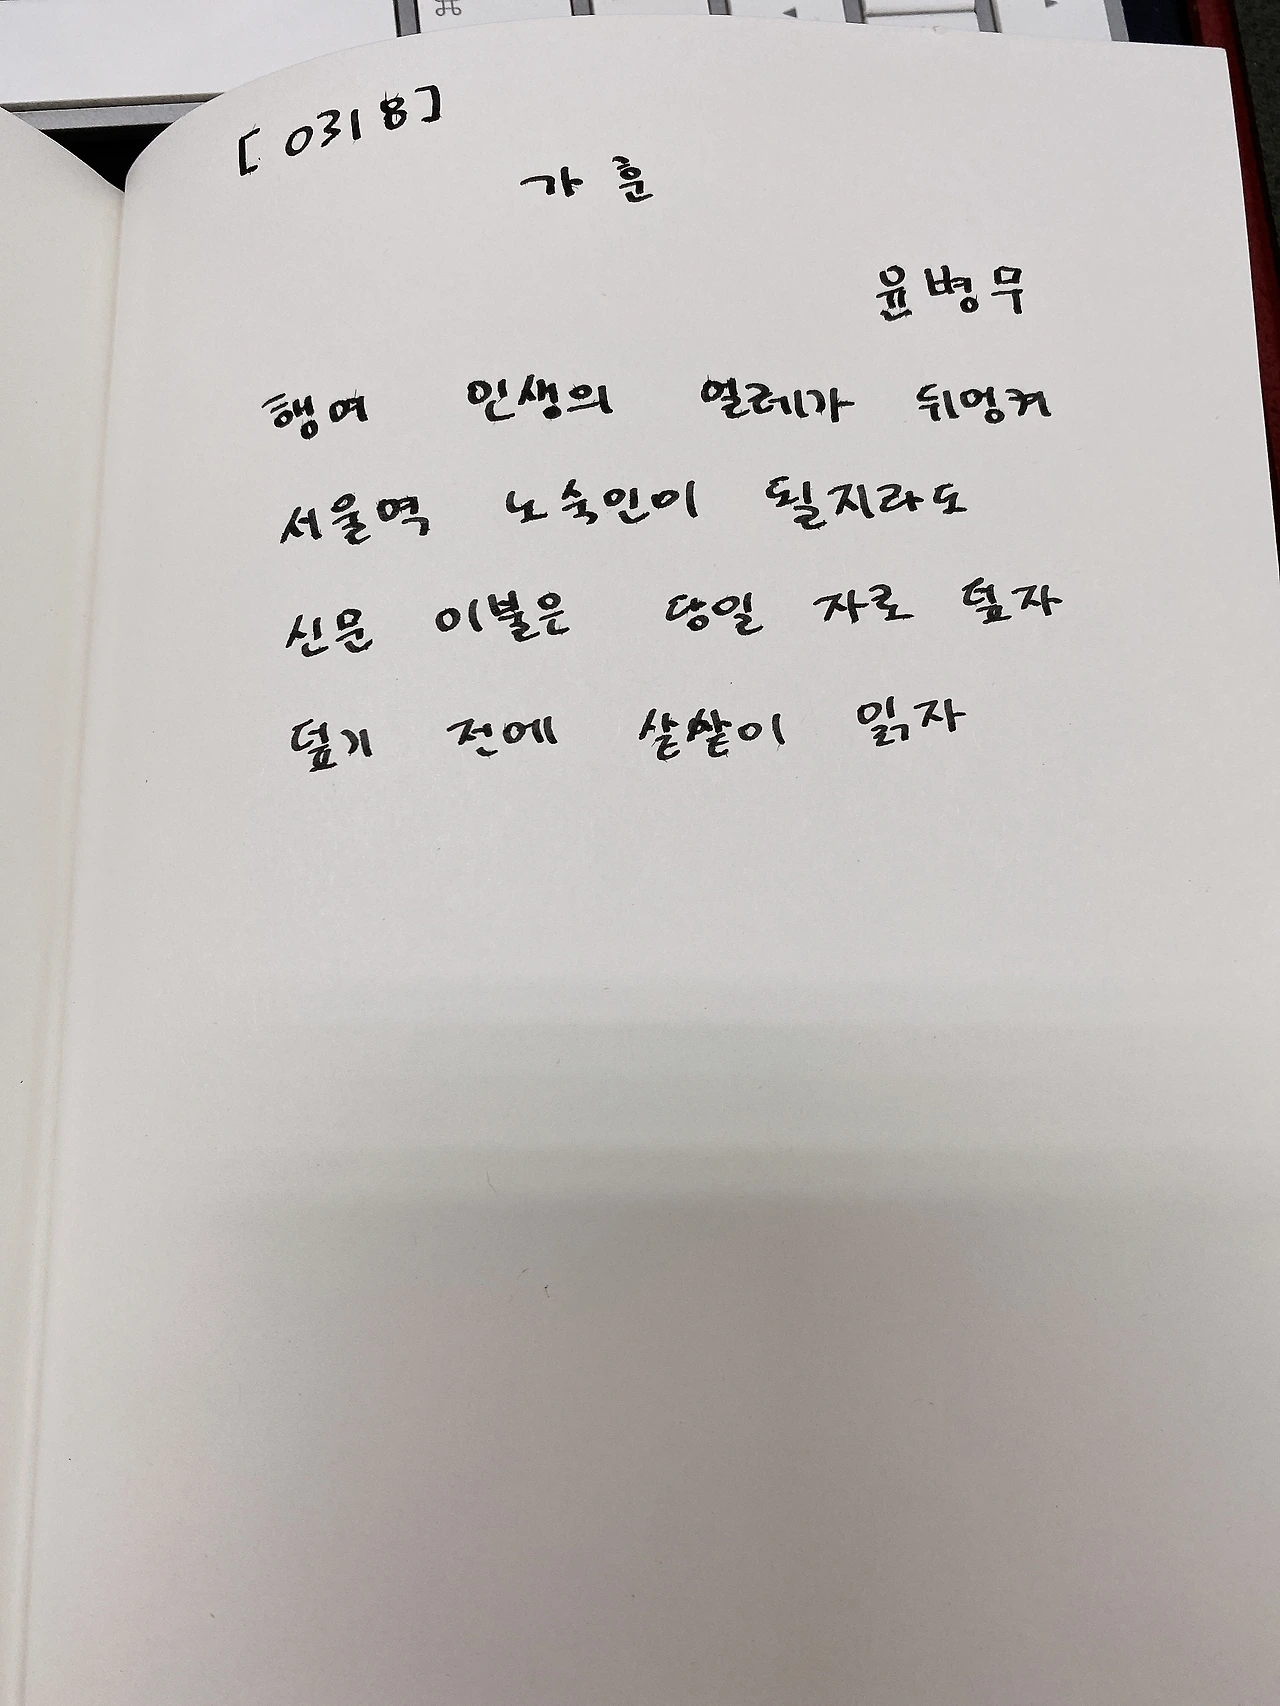 ⌘
[0318]
가훈
윤병무
행여 인생의 얼레가 뒤엉켜
서울역 노숙인이 될지라도
신문 이불은 당일 자로 덮자
덮기 전에 샅샅이 읽자